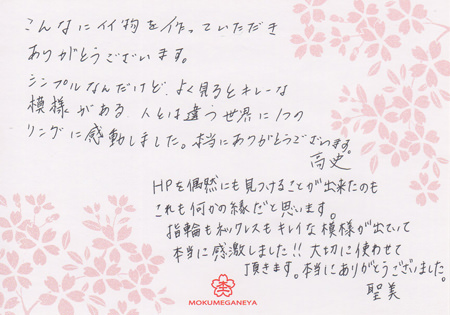 こんなにイイ物を作っていただき
ありがとうございます。
シンプルなんだけど、よく見るとキレーな
模様がある、人とは違う世界に1つの
リングに感動しました。本当にありがとうございます。
高史
HPを偶然にも見つけることが出来たのも
これも何かの縁だと思います。
指輪もネックレスもキレイな模様が出ていて
本当に感激しました!!大切に使わせて
頂きます。本当にありがとうございました。
聖美
MOKUMEGANEYA